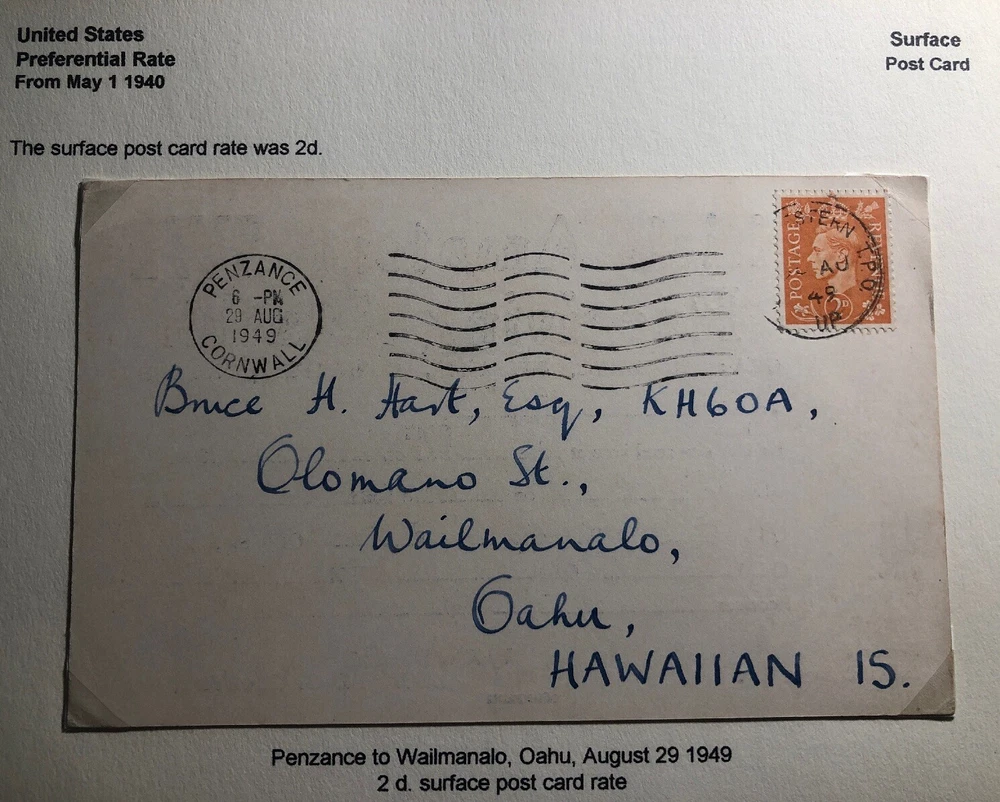 United States
Preferential Rate
From May 1 1940
Surface
Post Card
The surface post card rate was 2d.
PENZANCE
6 -PM
29 AUG
1949
CORNWALL
POSTAGE
REVENUE
2D
STERN T.P.O.
AU
UP
Bruce H. Hart, Esq, KH6OA,
Olomano St.,
Wailmanalo,
Oahu,
HAWAIIAN IS.
Penzance to Wailmanalo, Oahu, August 29 1949
2 d. surface post card rate